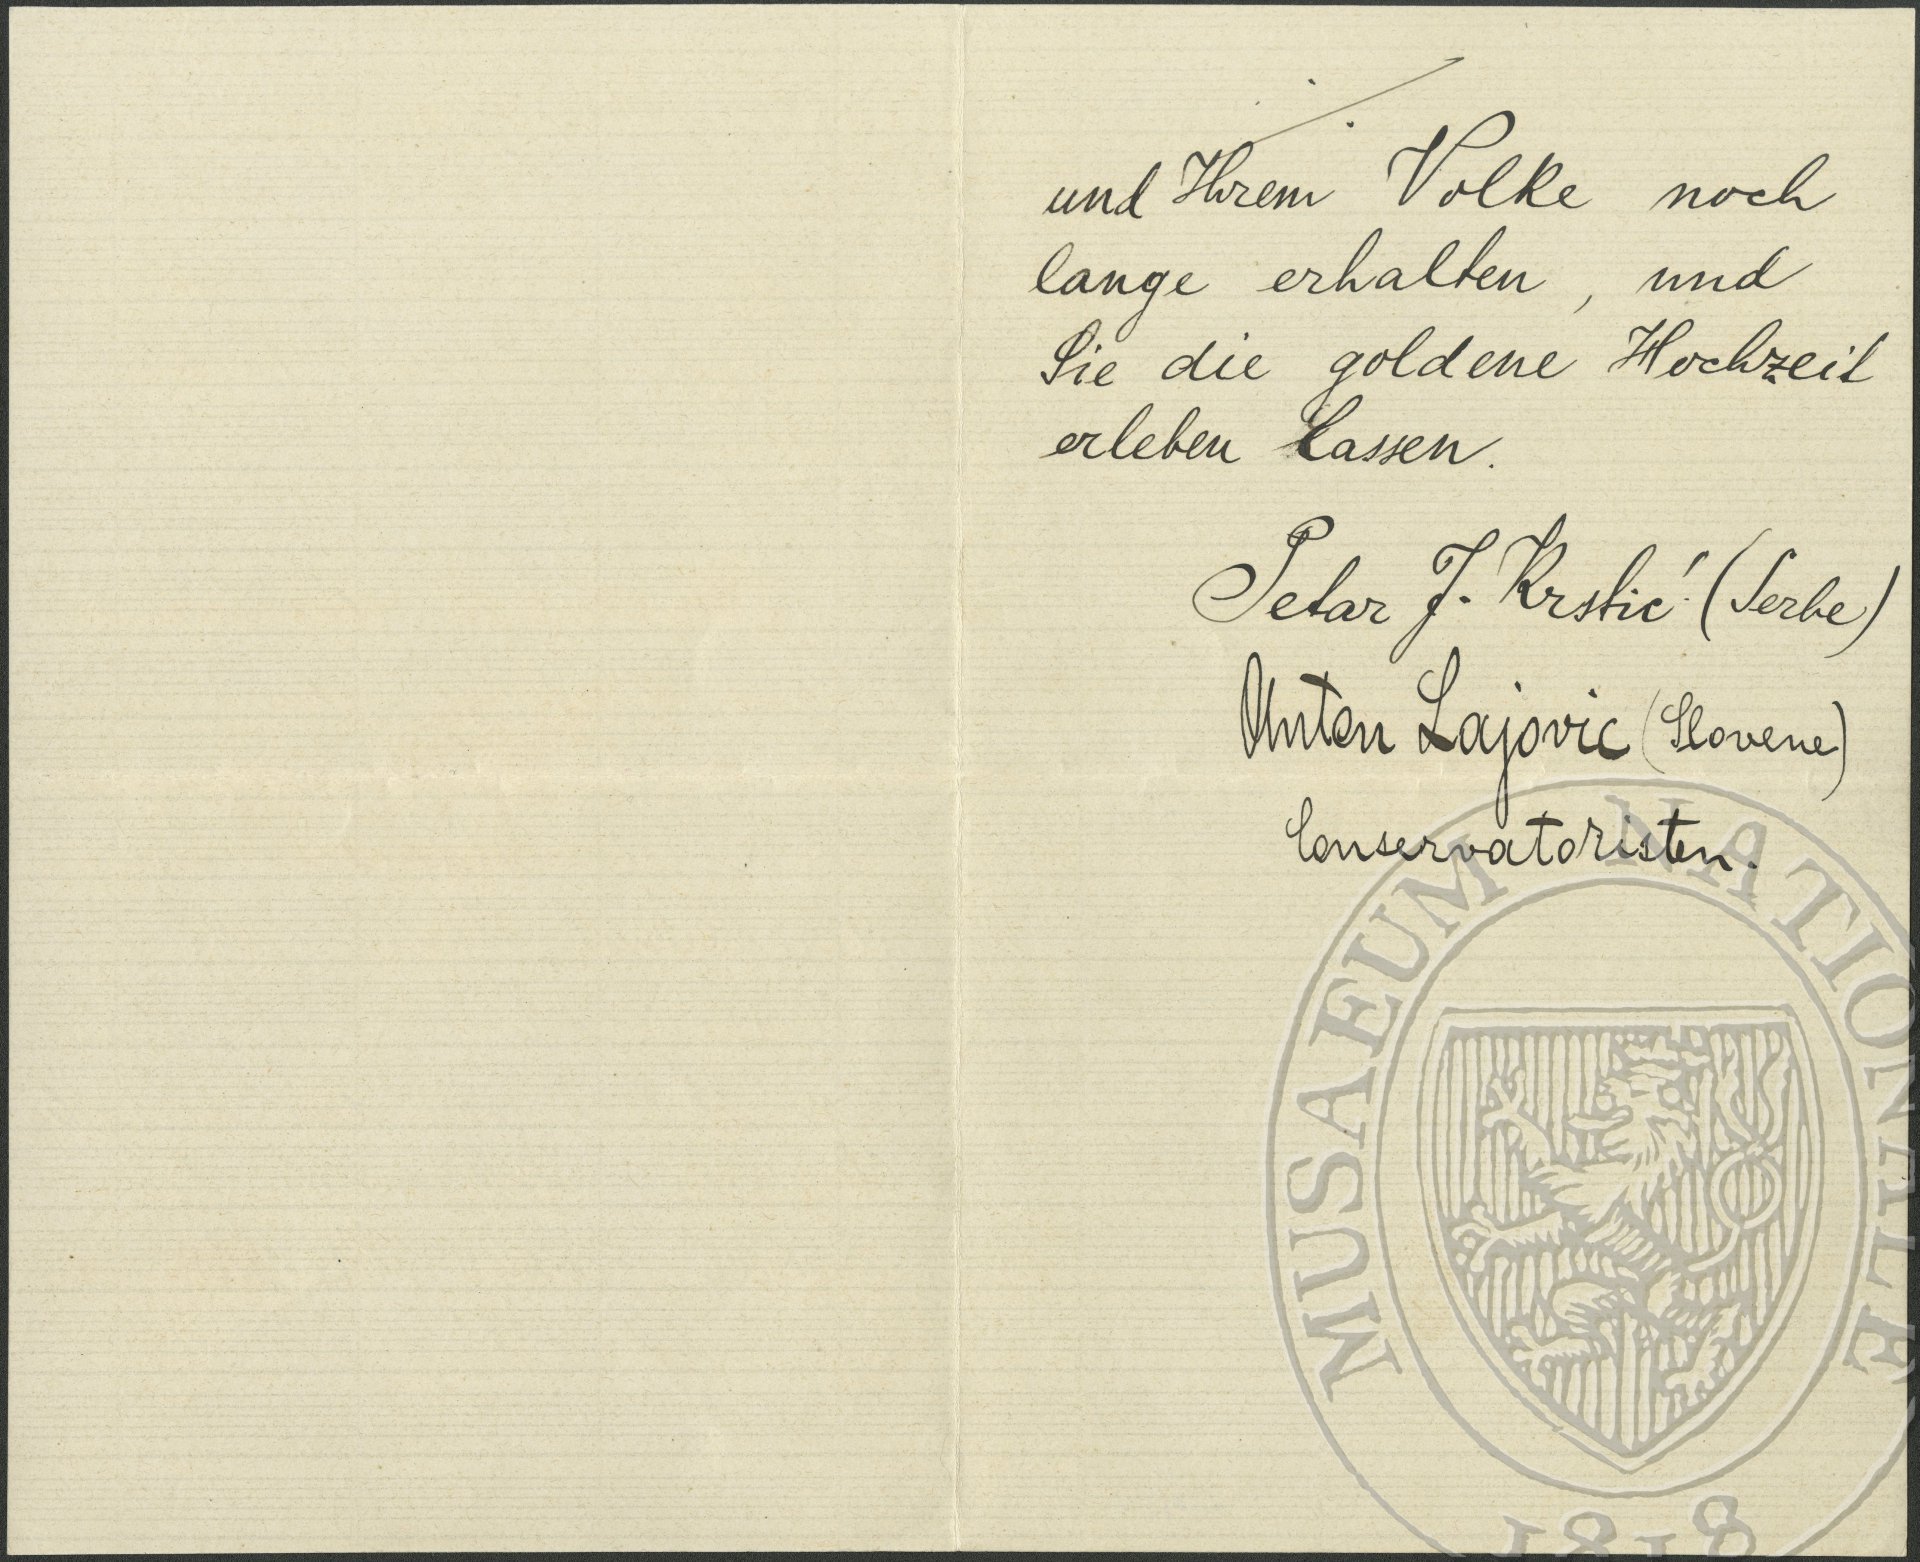 und Ihrem Volke noch
lange erhalten, und
Sie die goldene Hochzeit
erleben lassen.
Petar J. Krstić (Serbe)
Anton Lajovic (Slovene)
Conservatoristen.
MUSAEUM NATIONALE
1818